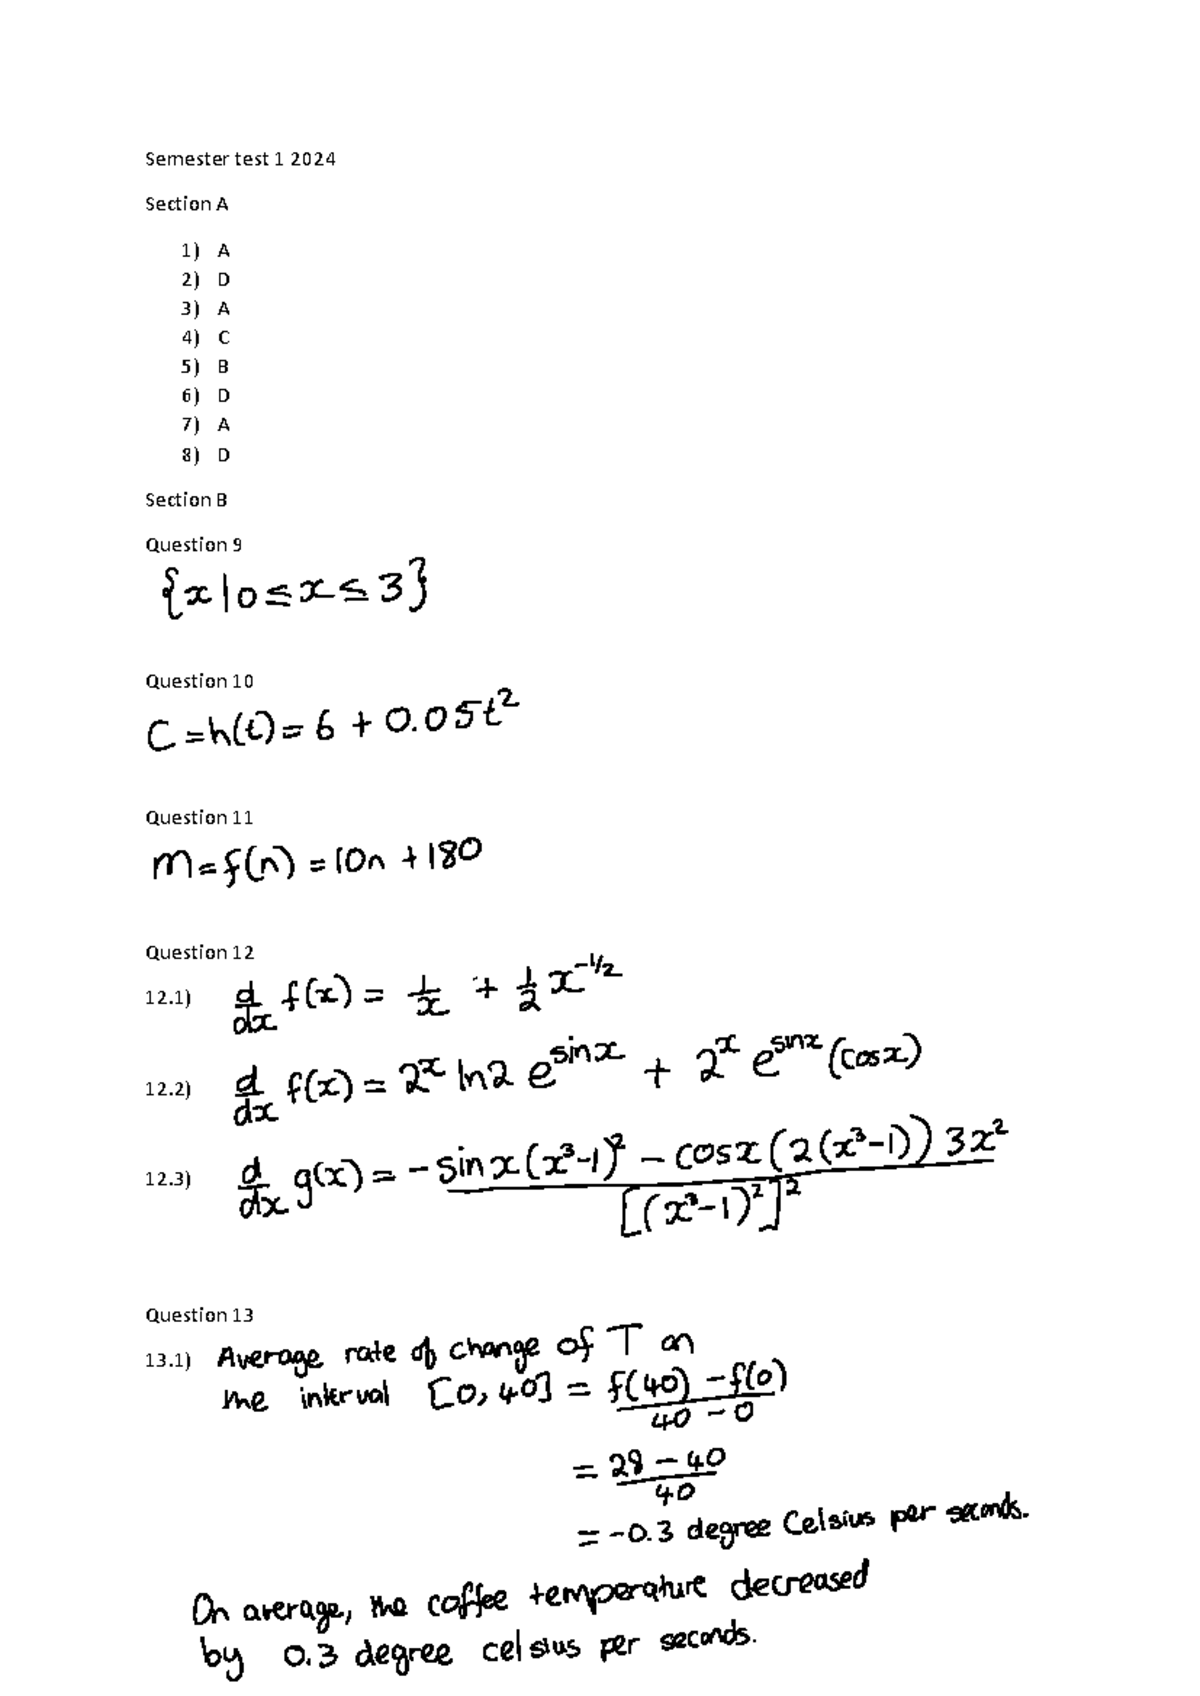 Semester test 1 2024
Section A
1) A
2) D
3) A
4) C
5) B
6) D
7) A
8) D
Section B
Question 9
{x|0≤x≤3}
Question 10
C=h(t)=6+0.05t²
Question 11
m=f(n)=10n+180
Question 12
12.1) d/dx f(x) = 1/x + 1/2 x^(-1/2)
12.2) d/dx f(x) = 2^x ln2 e^(sinx) + 2^x e^(sinx) (cosx)
12.3) d/dx g(x) = -sinx(x³-1)² - cosx(2(x³-1))3x² / [(x³-1)²]²
Question 13
13.1) Average rate of change of T on
the interval [0,40] = f(40)-f(0) / 40-0
= 28-40 / 40
= -0.3 degree Celsius per seconds.
On average, the coffee temperature decreased
by 0.3 degree celsius per seconds.